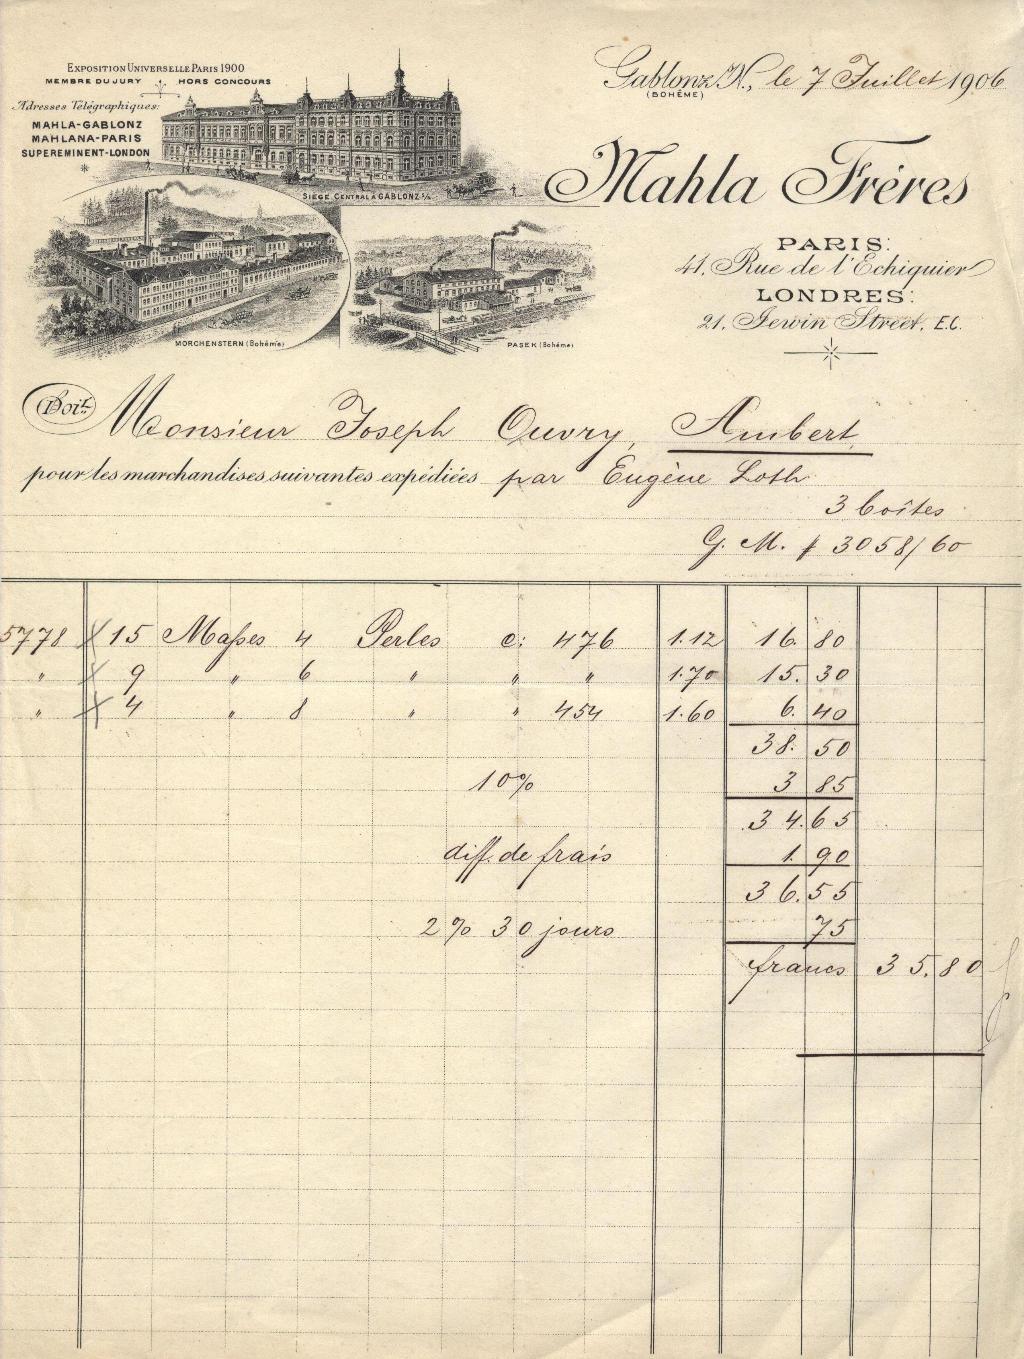 Exposition Universelle Paris 1900
MEMBRE DU JURY HORS CONCOURS
Adresses Télégraphiques:
MAHLA-GABLONZ
MAHLANA-PARIS
SUPEREMINENT-LONDON
SIEGE CENTRAL A GABLONZ s/N.
MORCHENSTERN (Bohême)
PASEK (Bohême)
Gablonz s/N., le 7 Juillet 1906
(BOHÊME)
Mahla Frères
PARIS:
41, Rue de l'Echiquier
LONDRES:
21, Jewin Street, E.C.
Doit Monsieur Joseph Ouvry, Ambert,
pour les marchandises suivantes expédiées par Eugène Loth
3 boîtes
G. M. # 3058/60
5778 15 Masses 4 Perles c: 476 1.12 16.80
" 9 " 6 " " " 1.70 15.30
" 4 " 8 " " 454 1.60 6.40
38.50
10% 3 85
34.65
diff. de frais 1.90
36.55
2% 30 jours 75
francs 35.80